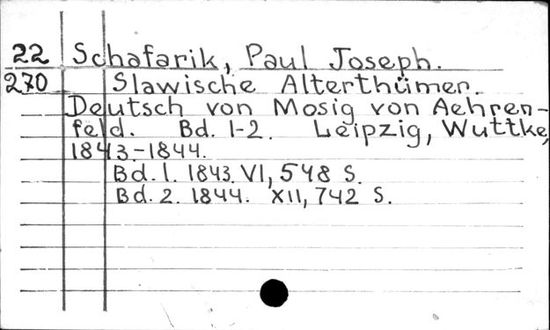 22 Schafarik, Paul Joseph.
270 Slawische Alterthümer.
Deutsch von Mosig von Aehren-
feld. Bd. 1-2. Leipzig, Wuttke,
1843-1844.
Bd. 1. 1843. VI, 548 S.
Bd. 2. 1844. XII, 742 S.